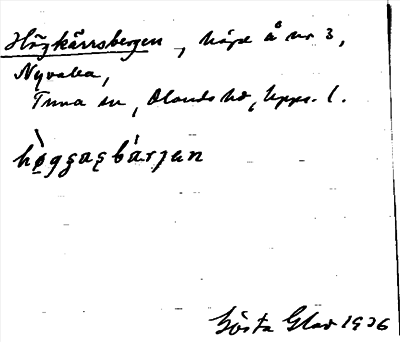 Högkärrsbergen, höjd å nr 3,
Nyvalla,
Tuna sn, Olands hd, Upps. l.
høgʒaʂbarjen
Gösta Glad 1936